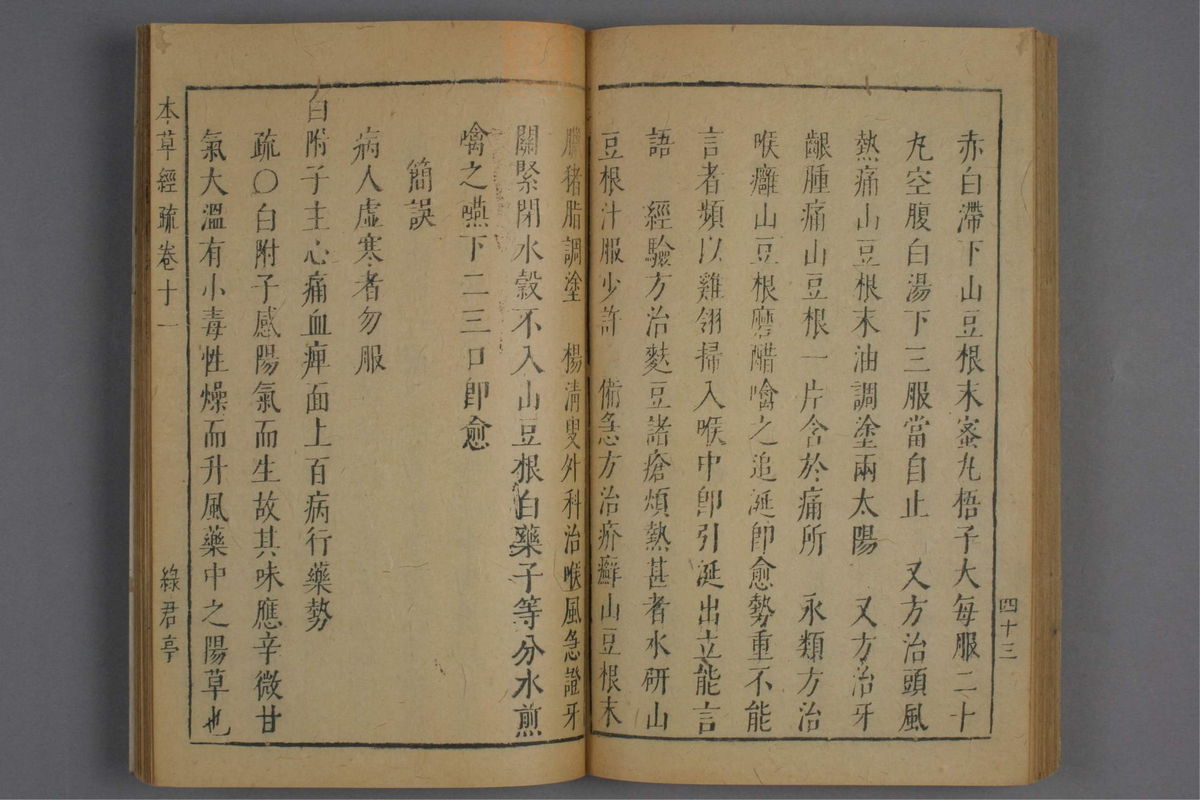 赤白滯下山豆根末蜜丸梧子大每服二十
丸空腹白湯下三服當自止　又方治頭風
熱痛山豆根末油調塗兩太陽　又方治牙
齦腫痛山豆根一片含於痛所　永類方治
喉癰山豆根磨醋噙之追涎即愈勢重不能
言者頻以雞翎掃入喉中即引涎出立能言
語　經驗方治麩豆諸瘡煩熱甚者水研山
豆根汁服少許　備急方治疥癬山豆根末
臘猪脂調塗　楊清叟外科治喉風急證牙
關緊閉水穀不入山豆根白藥子等分水煎
噙之嚥下二三口即愈
簡誤
病人虛寒者勿服
白附子主心痛血痺面上百病行藥勢
疏〇白附子感陽氣而生故其味應辛微甘
氣大溫有小毒性燥而升風藥中之陽草也
四十三
本草經疏卷十一
綠君亭